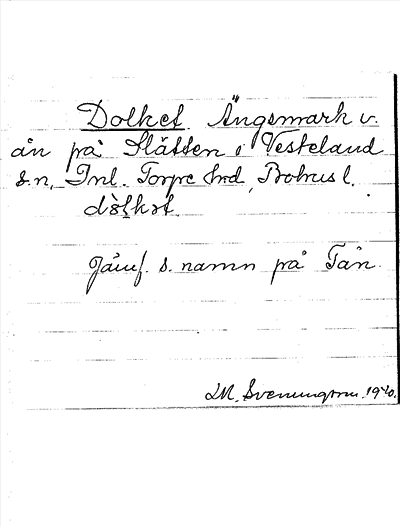 Dolket Ängsmark v.
ån på Slätten i Vesteland
s.n, Inl. Torpe hrd, Bohus l.
dòlkət
Jämf. s. namn på Tån.
LM. Svenungsson. 1940.